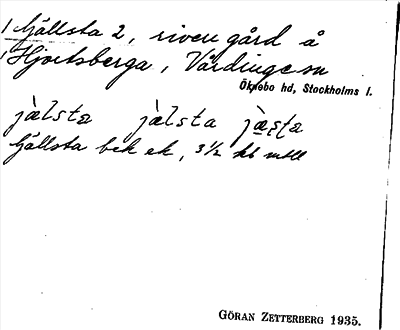 Hjällsta 2, riven gård å
Hjortsberga, Vårdinge sn
Öknebo hd, Stockholms l.
jälsta jälsta
Hjällsta bck ek, 3½ kt mtll
GÖRAN ZETTERBERG 1935.